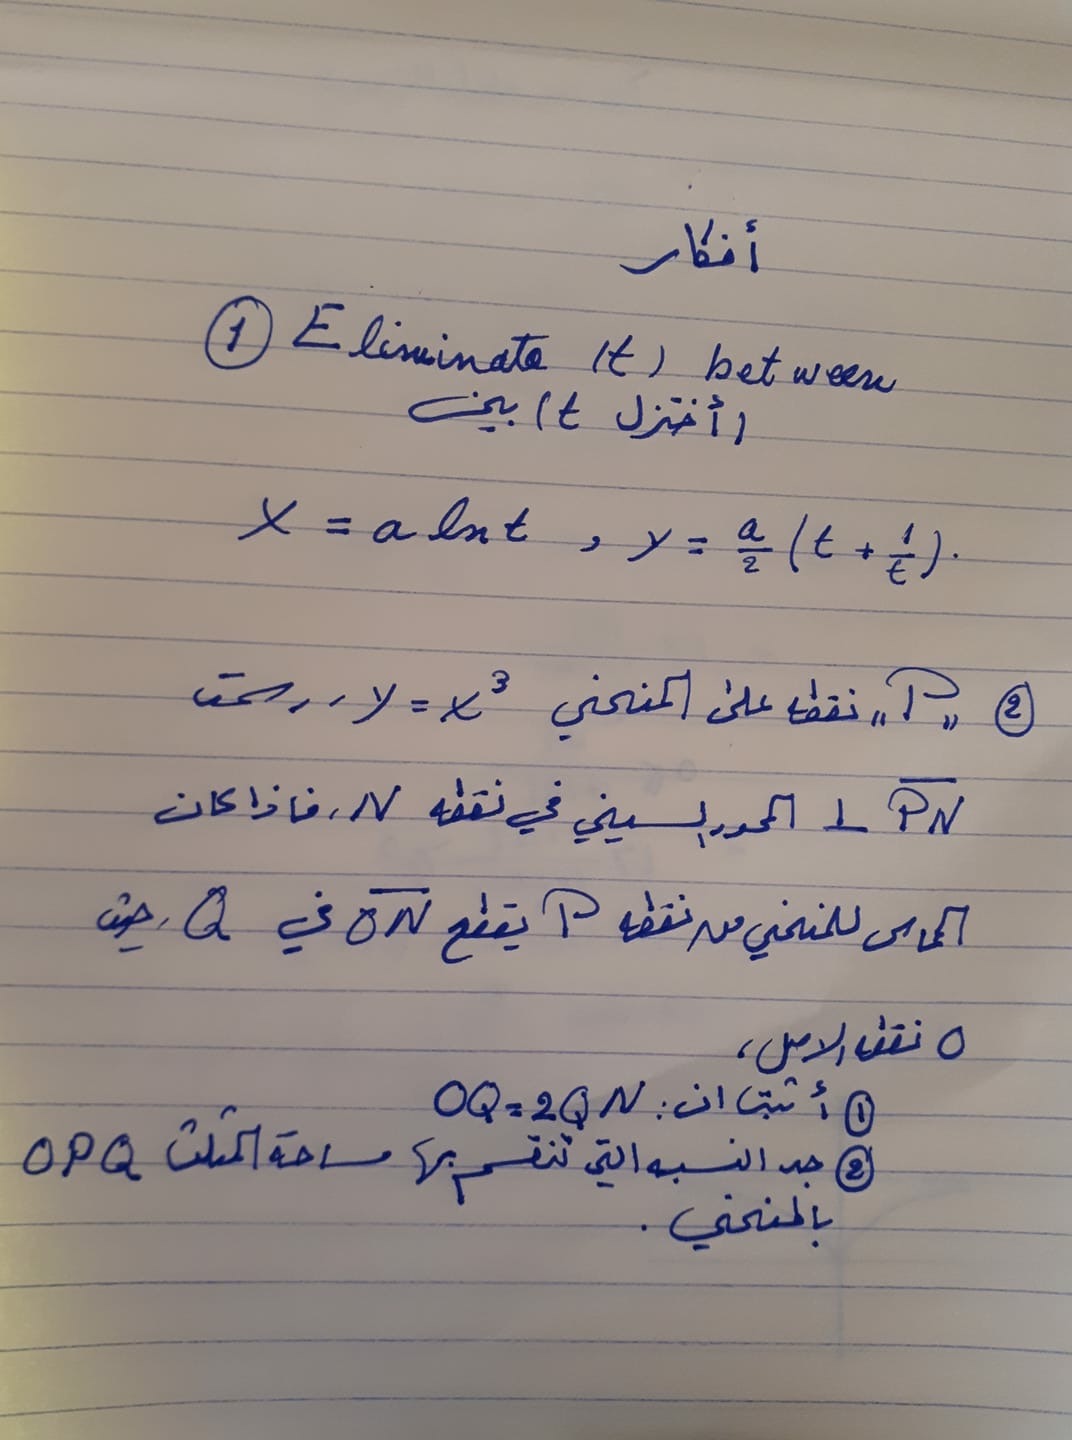 أفكار
① Eliminate (t) between
(أختزل t) بين
x = a ln t , y = a/2 (t + 1/t).
② „P" نقطة على المنحني y = x³ ,, رسمت
PN ⊥ المحور السيني في نقطة N, فاذا كان
المماس للمنحني من نقطة P يقطع ON في Q, حيث
O نقطة الاصل,
① أثبت ان: OQ = 2QN
② جد النسبه التي تنقسم بها مساحة المثلث OPQ
بالمنحني.